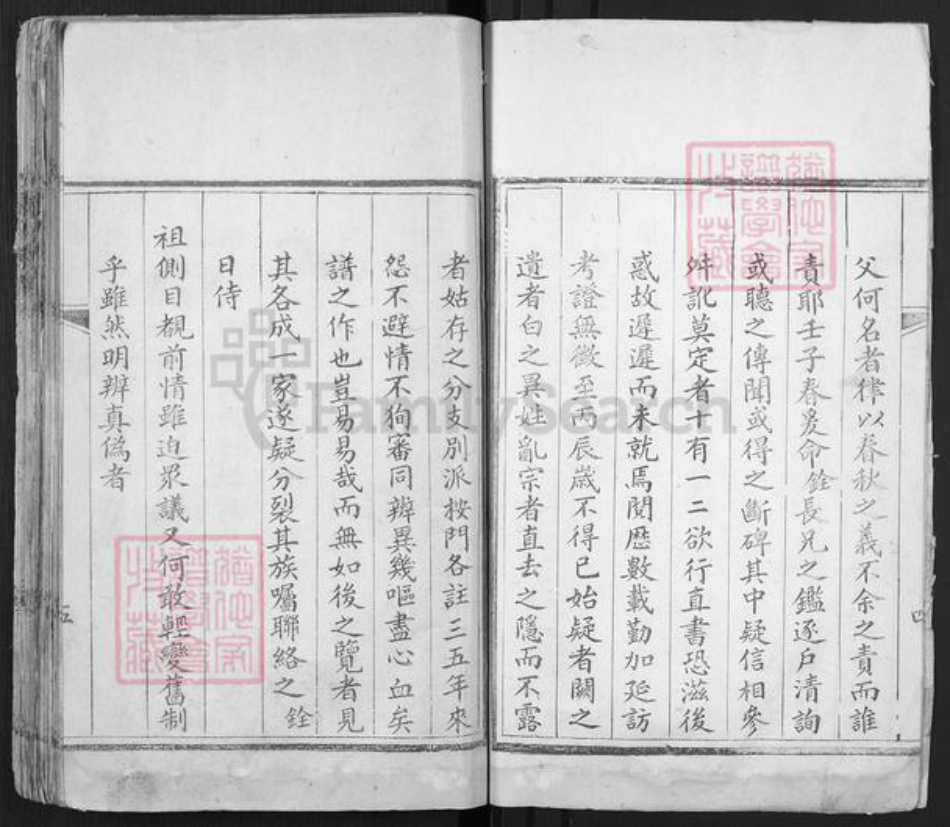 父何名者律以春秋之義不余之責而誰
責耶壬子春爰命銓長兄之鑑逐戶清詢
或聽之傳聞或得之斷碑其中疑信相參
舛訛莫定者十有一二欲行直書恐滋後
惑故遲遲而未就焉閱歷數載勤加延訪
考證無徵至丙辰歲不得已始疑者闕之
遺者白之異姓亂宗者直去之隱而不露
四
者姑存之分支別派按門各註三五年來
怨不避情不狥審同辨異幾嘔盡心血矣
譜之作也豈易易哉而無如後之覽者見
其各成一家遂疑分裂其族囑聯絡之銓
日侍
祖側目覩前情雖迫眾議又何敢輕變舊制
乎雖然明辨真偽者
五
FamilySearch